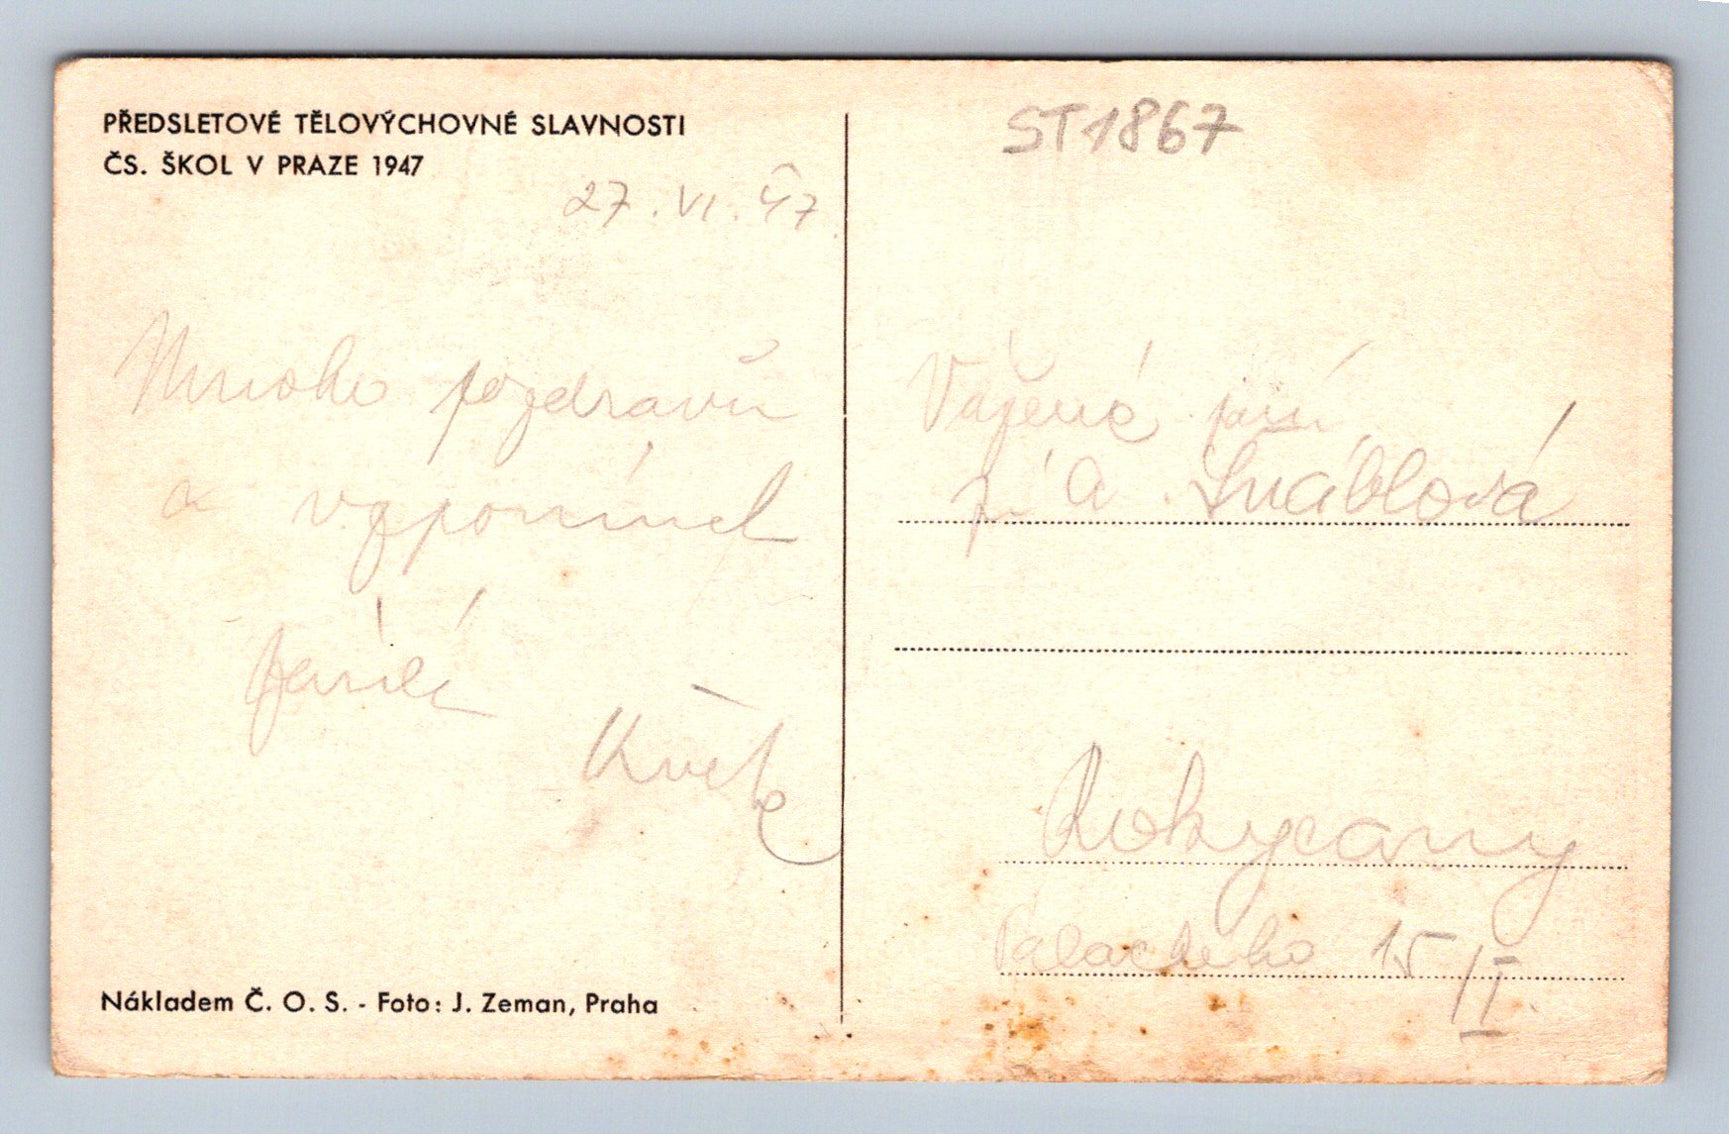 PŘEDSLETOVÉ TĚLOVÝCHOVNÉ SLAVNOSTI
ČS. ŠKOL V PRAZE 1947
27. VI. 47.
Mnoho pozdravů
a vzpomínek
Nákladem Č. O. S. - Foto: J. Zeman, Praha
ST1867
Vážená paní
Rokycany
Palackého 15/II